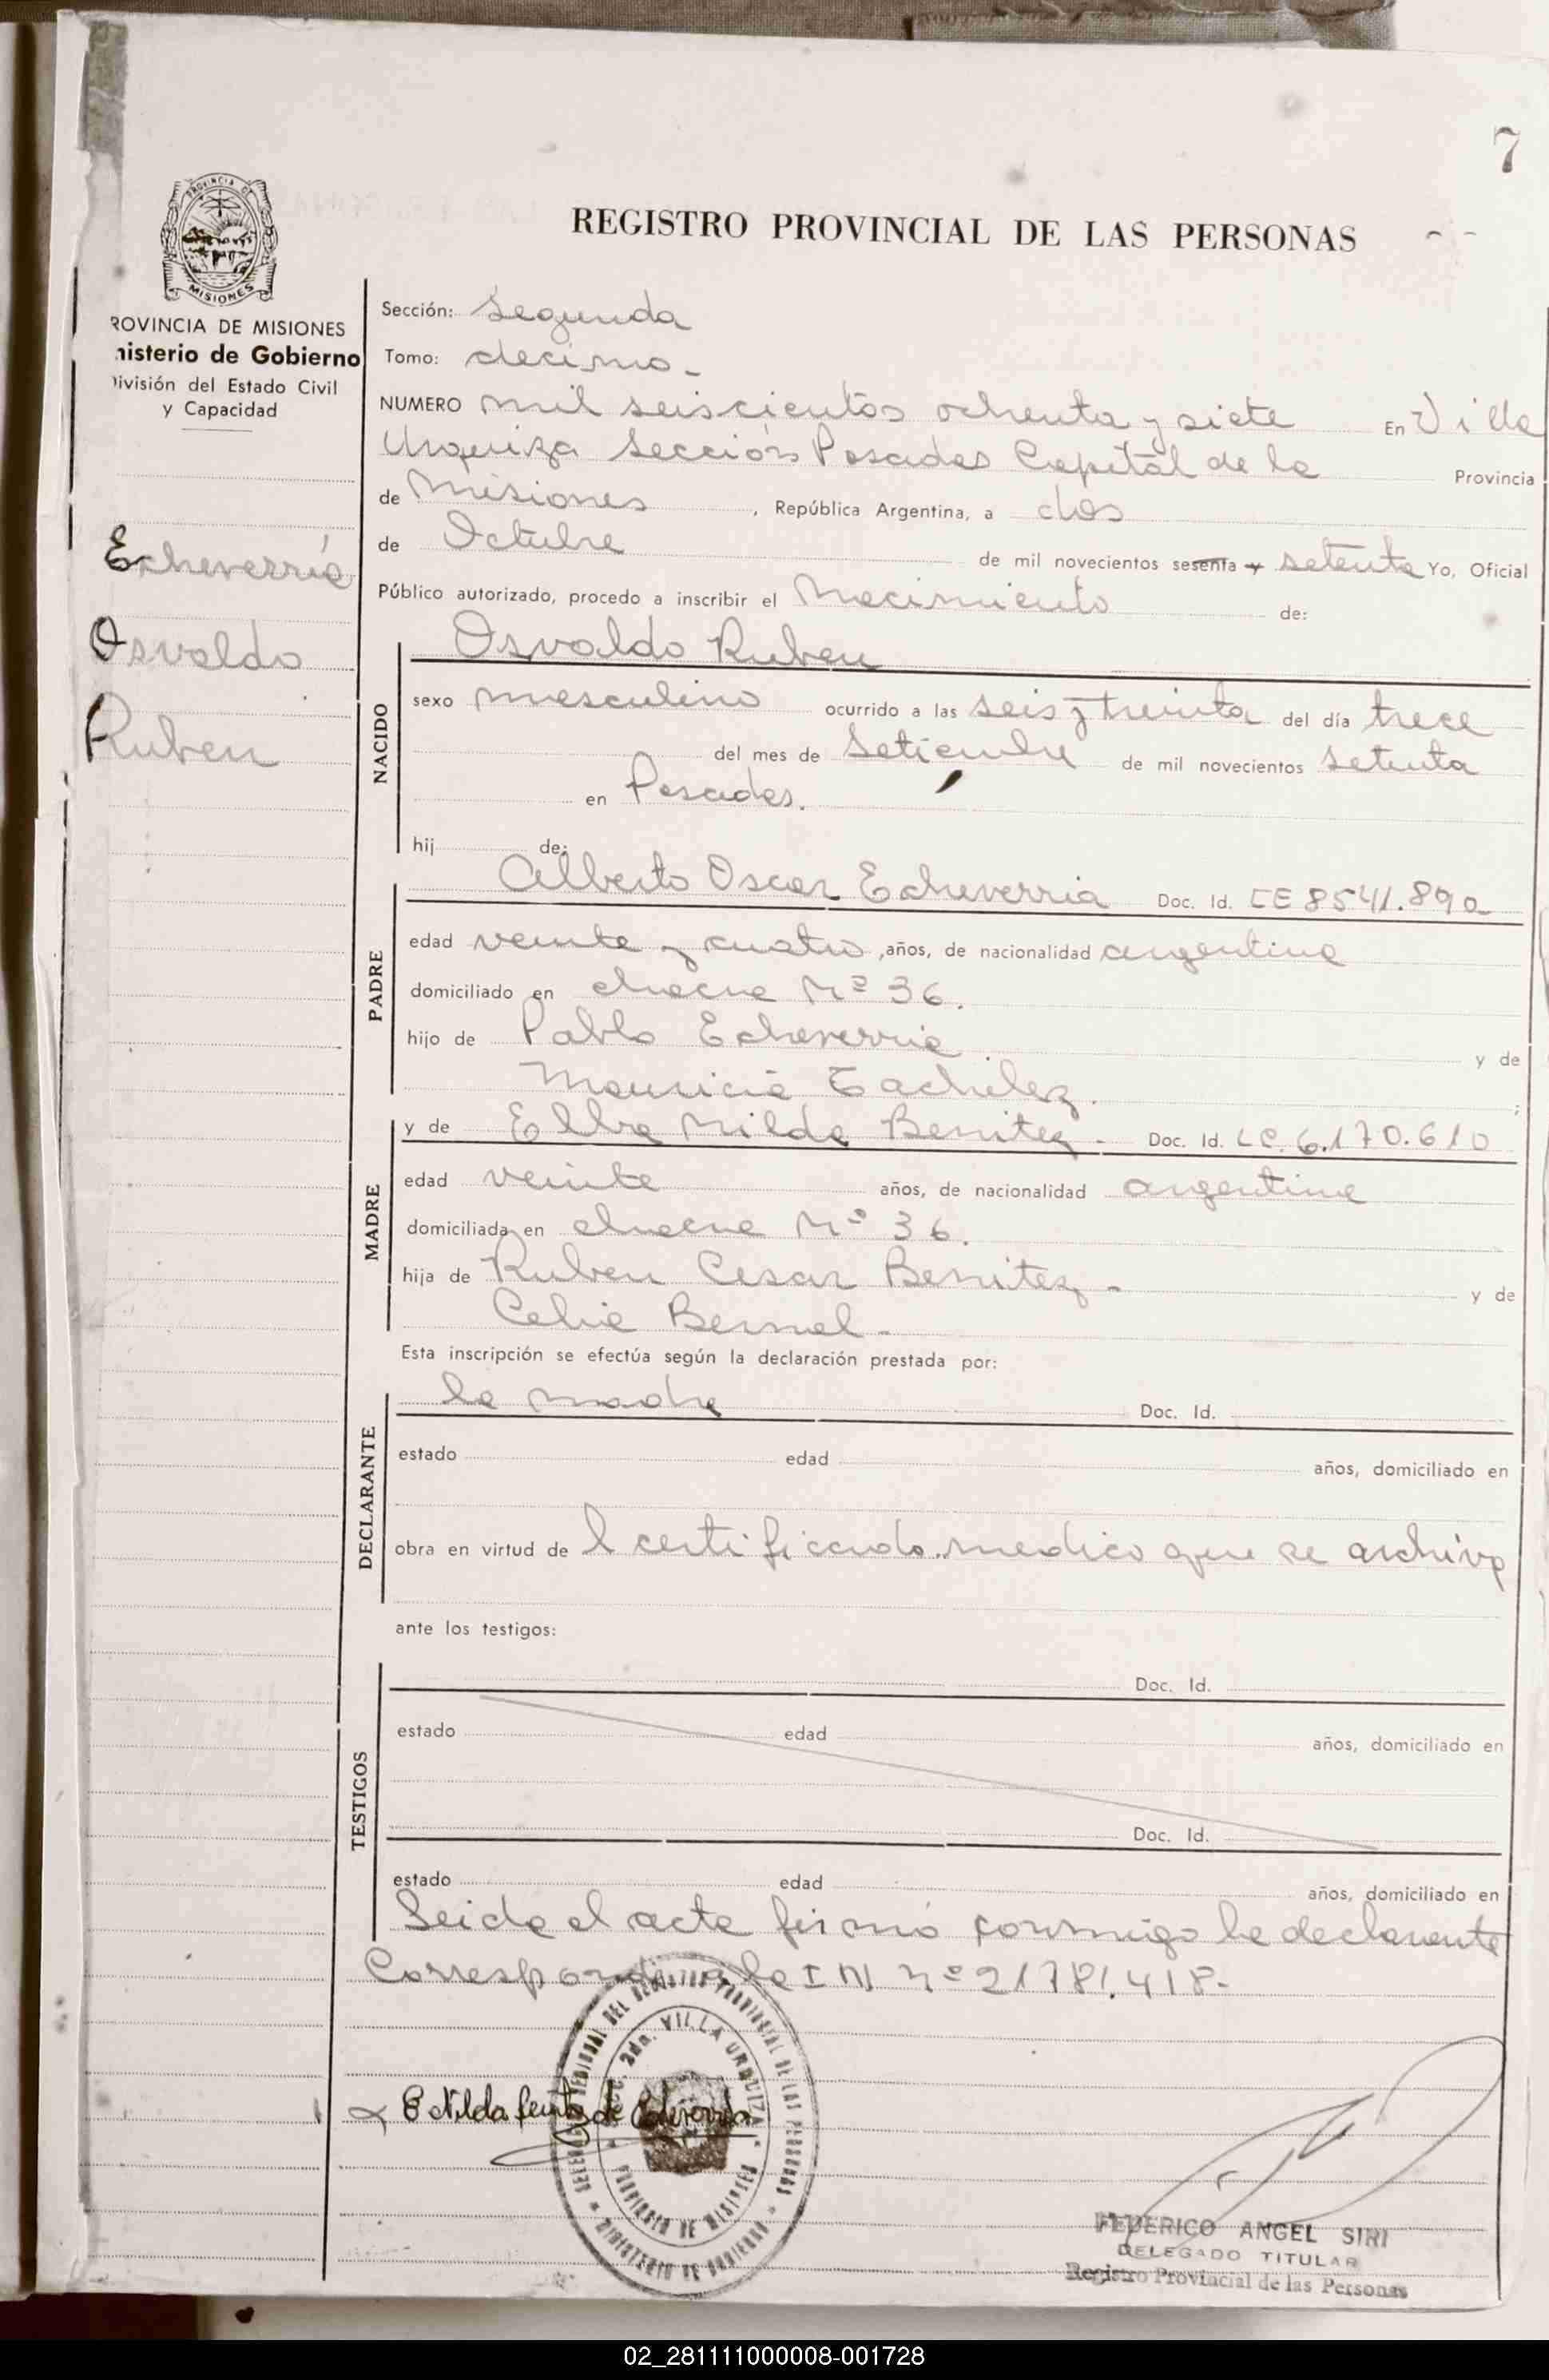 7
REGISTRO PROVINCIAL DE LAS PERSONAS
PROVINCIA DE
MISIONES
ROVINCIA DE MISIONES
nisterio de Gobierno
ivisión del Estado Civil
y Capacidad
Echeverría
Osvaldo
Ruben
Sección: Segunda
Tomo: decimo -
NUMERO mil seiscientos ochenta y siete En Villa
Urquiza Sección Posadas Capital de la Provincia
de Misiones, República Argentina, a dos
de Octubre de mil novecientos sesenta y setenta Yo, Oficial
Público autorizado, procedo a inscribir el Nacimiento de:
NACIDO
Osvaldo Ruben
sexo masculino ocurrido a las seis y treinta del día trece
del mes de Setiembre de mil novecientos setenta
en Posadas.
hij de:
PADRE
Alberto Oscar Echeverria Doc. Id. LE 8541.890
edad veinte y cuatro, años, de nacionalidad argentina
domiciliado en chacra Nº 36.
hijo de Pablo Echeverria y de
Mauricia
MADRE
y de Elba Nilda Benitez - Doc. Id. LC. 6.170.610
edad veinte años, de nacionalidad argentina
domiciliada en chacra Nº 36.
hija de Ruben Cesar Benitez - y de
Celia Bernal -
Esta inscripción se efectúa según la declaración prestada por:
DECLARANTE
la madre Doc. Id.
estado edad años, domiciliado en
obra en virtud de l certificado medico que se archiva
ante los testigos:
TESTIGOS
Doc. Id.
estado edad años, domiciliado en
Doc. Id.
estado edad años, domiciliado en
Leida el acta firmó conmigo la declarante
Corresponde le I M nº 21781.418-
E Nilda Benitez de Echeverria
REGIONAL DEL REGISTRO PROVINCIAL DE LAS PERSONAS
SECC. 2da. VILLA URQUIZA
PROVINCIA DE MISIONES
MINISTERIO DE GOBIERNO
FEDERICO ANGEL SIRI
DELEGADO TITULAR
Registro Provincial de las Personas
02_281111000008-001728